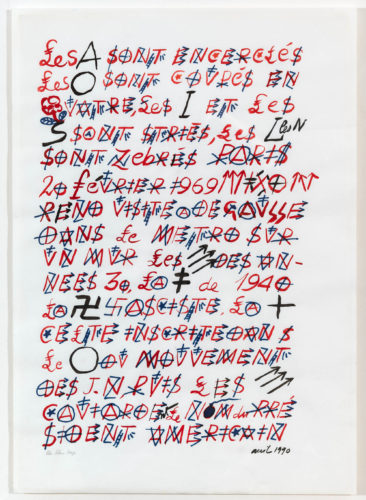 Les A SONT ENCERCLÉS
Les O SONT COUPÉS EN
QUATRE, Les I ET Les
S SONT STRIÉS, Les N
SONT ZEBRÉS PARIS
20 FÉVRIER 1969 ↑↑↑ NIXON ↑↑
REND VISITE A DE GAULLE
DANS Le METRO SUR
UN MUR Les DES AN-
NÉES 30, LA ‡ de 1940
LA 卐 FASCISTE, LA +
CELTE INSCRITE DANS
Le O DU MOUVEMENT
DES J.N PUIS LES
CAVIARDE Le NOM du PRÉ
SIDENT AMERICAIN
avril 1990